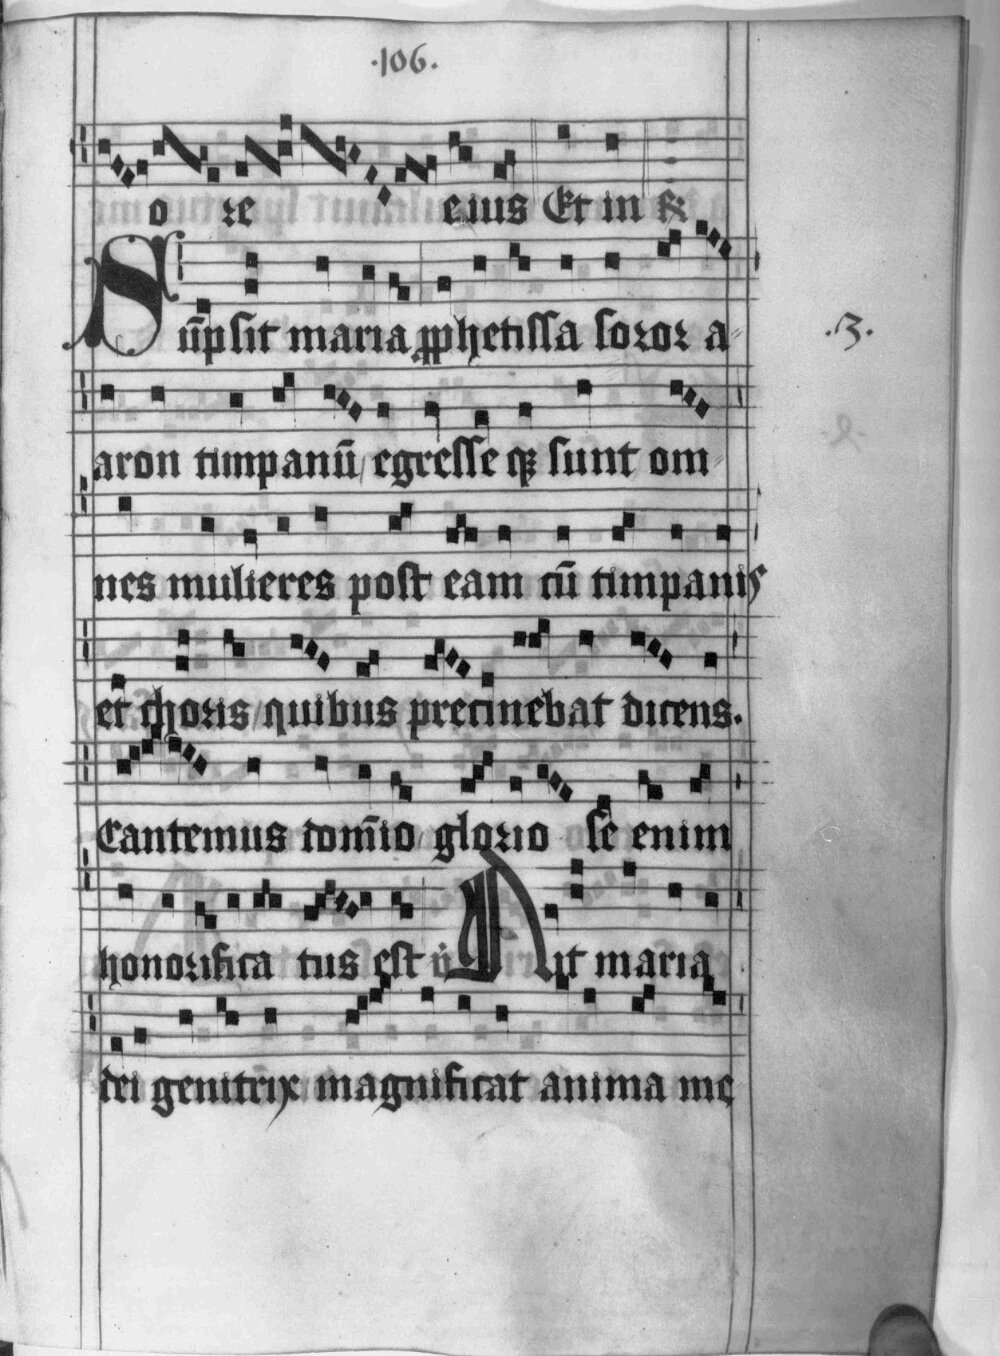 ·106·
o re eius Et in
Sūpsit maria ꝓphetissa soror a-
·3·
aron timpanū egresse qꝫ sunt om-
nes mulieres post eam cū timpanis
et choris quibus precinebat dicens.
Cantemus dom̄io glorio se enim
honorifica tus est Dit maria
dei genitrix magnificat anima me